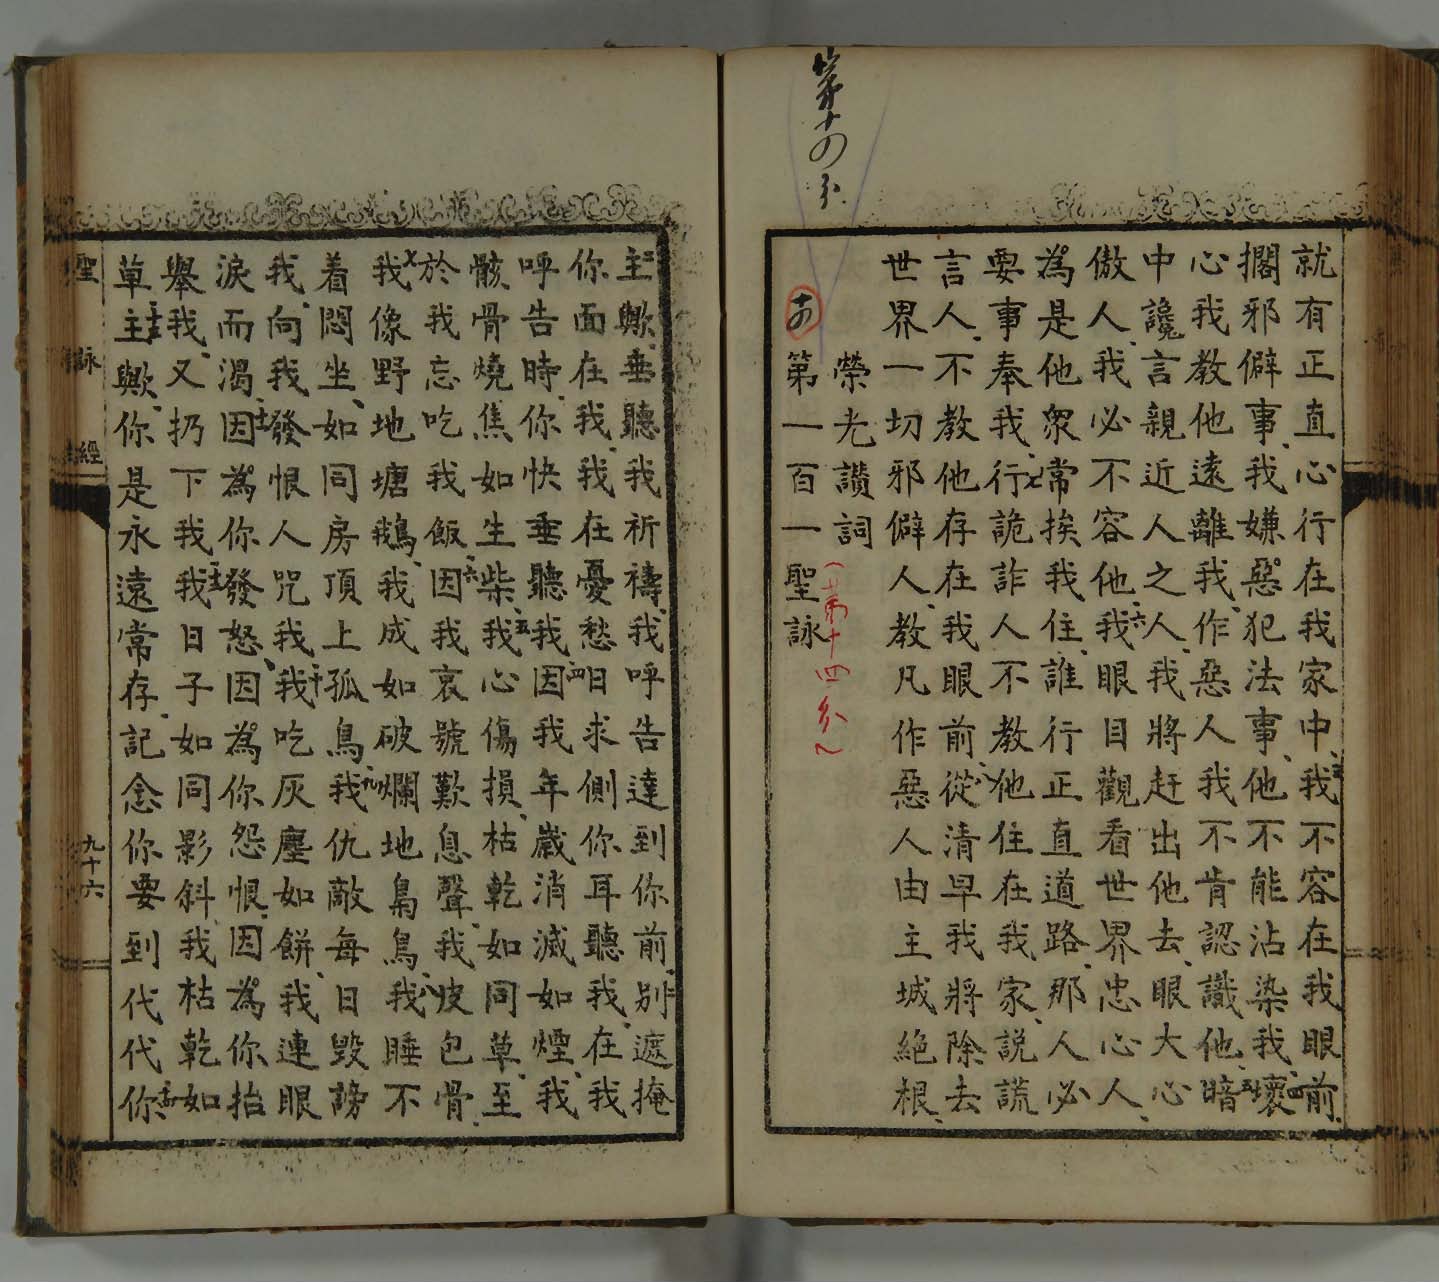 第十四分
就有正直心行在我家中、三我不容在我眼前、
擱邪僻事、我嫌惡犯法事、他不能沾染我、四壞
心我教他遠離我、作惡人我不肯認識他、五暗
中讒言親近人之人、我將赶出他去、眼大心
傲人、我必不容他、六我眼目觀看世界忠心人、
為是他衆常挨我住、誰行正直道路、那人必
要事奉我、七行詭詐人不教他住在我家、説謊
言人、不教他存在我眼前、八從清早我將除去
世界一切邪僻人、教凡作惡人由主城絶根、
榮光讃詞(第十四分)
第一百一聖詠
主歟、垂聽我祈禱、我呼告達到你前、三別遮掩
你面在我、我在憂愁日、求側你耳聽我、在我
呼告時、你快垂聽我、四因我年歲消滅如煙、我
骸骨燒焦如生柴、五我心傷損、枯乾如同草、至
於我忘吃我飯、六因我哀號歎息聲、我皮包骨、
七我像野地塘鵝、我成如破爛地鳥鳥、八我睡不
着悶坐、如同房頂上孤鳥、九我仇敵每日毀謗
我、向我發恨人咒我、十我吃灰塵如餅、我連眼
淚而渴、十一因為你發怒、因為你怨恨、因為你抬
舉我、又扔下我、十二我日子如同影斜、我枯乾如
草、十三主歟、你是永遠常存、記念你要到代代、十四你
聖詠經
九十六